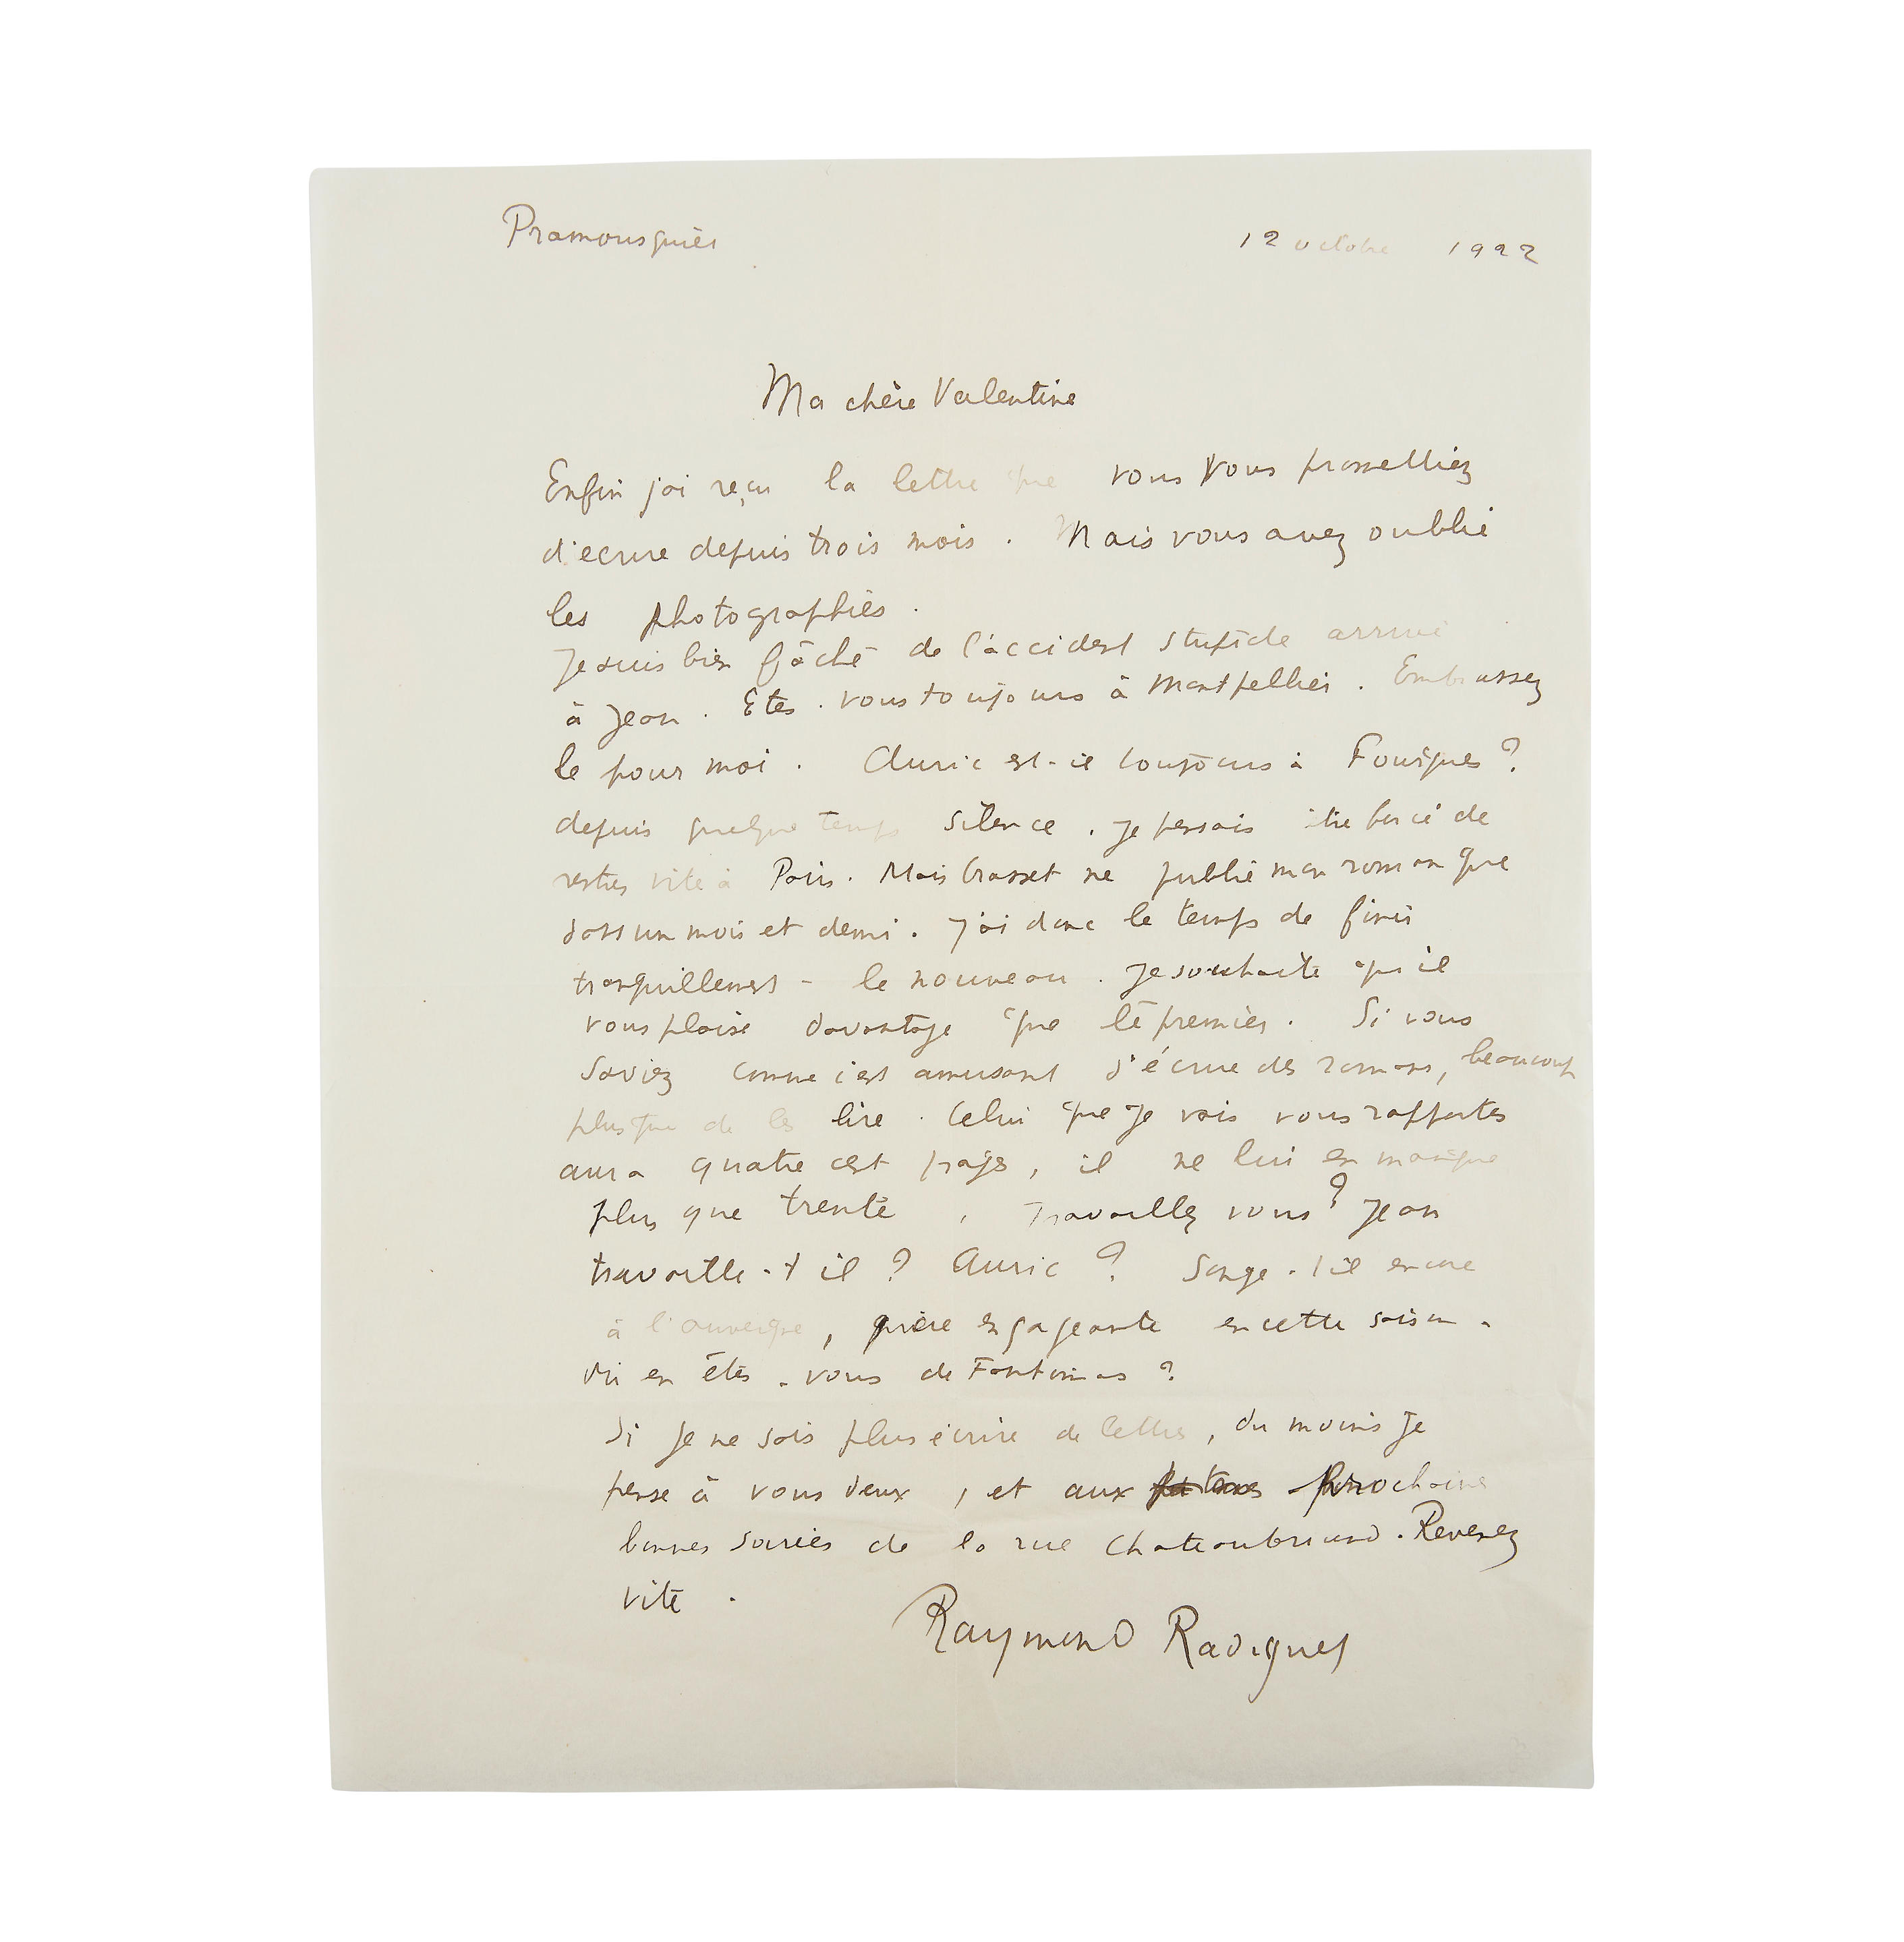 Pramousquier
12 octobre 1922
Ma chère Valentine
Enfin j'ai reçu la lettre que vous vous promettiez
d'ecrire depuis trois mois. Mais vous avez oublié
les photographies.
Je suis bien fâché de l'accident stupide arrivé
à Jean. Etes-vous toujours à Montpellier. Embrassez
le pour moi. Auric est-il toujours à Fourques ?
depuis quelque temps silence. Je pensais être forcé de
rentrer vite à Paris. Mais Grasset ne publie mon roman que
dans un mois et demi. J'ai donc le temps de finir
tranquillement - le nouveau. Je souhaite qu'il
vous plaise davantage que le premier. Si vous
saviez comme c'est amusant d'écrire des romans, beaucoup
plus que de les lire. Celui que je vais vous rapporter
aura quatre cent pages, il ne lui en manque
plus que trente. Travaillez vous ? Jean
travaille-t il ? Auric ? Songe-t il encore
à l'auvergne, guère engageante en cette saison.
Où en êtes-vous de Fantomas ?
Si je ne sais plus écrire de lettres, du moins je
pense à vous deux, et aux prochaines
bonnes soirées de la rue Chateaubriand. Revenez
vite.
Raymond Radiguet